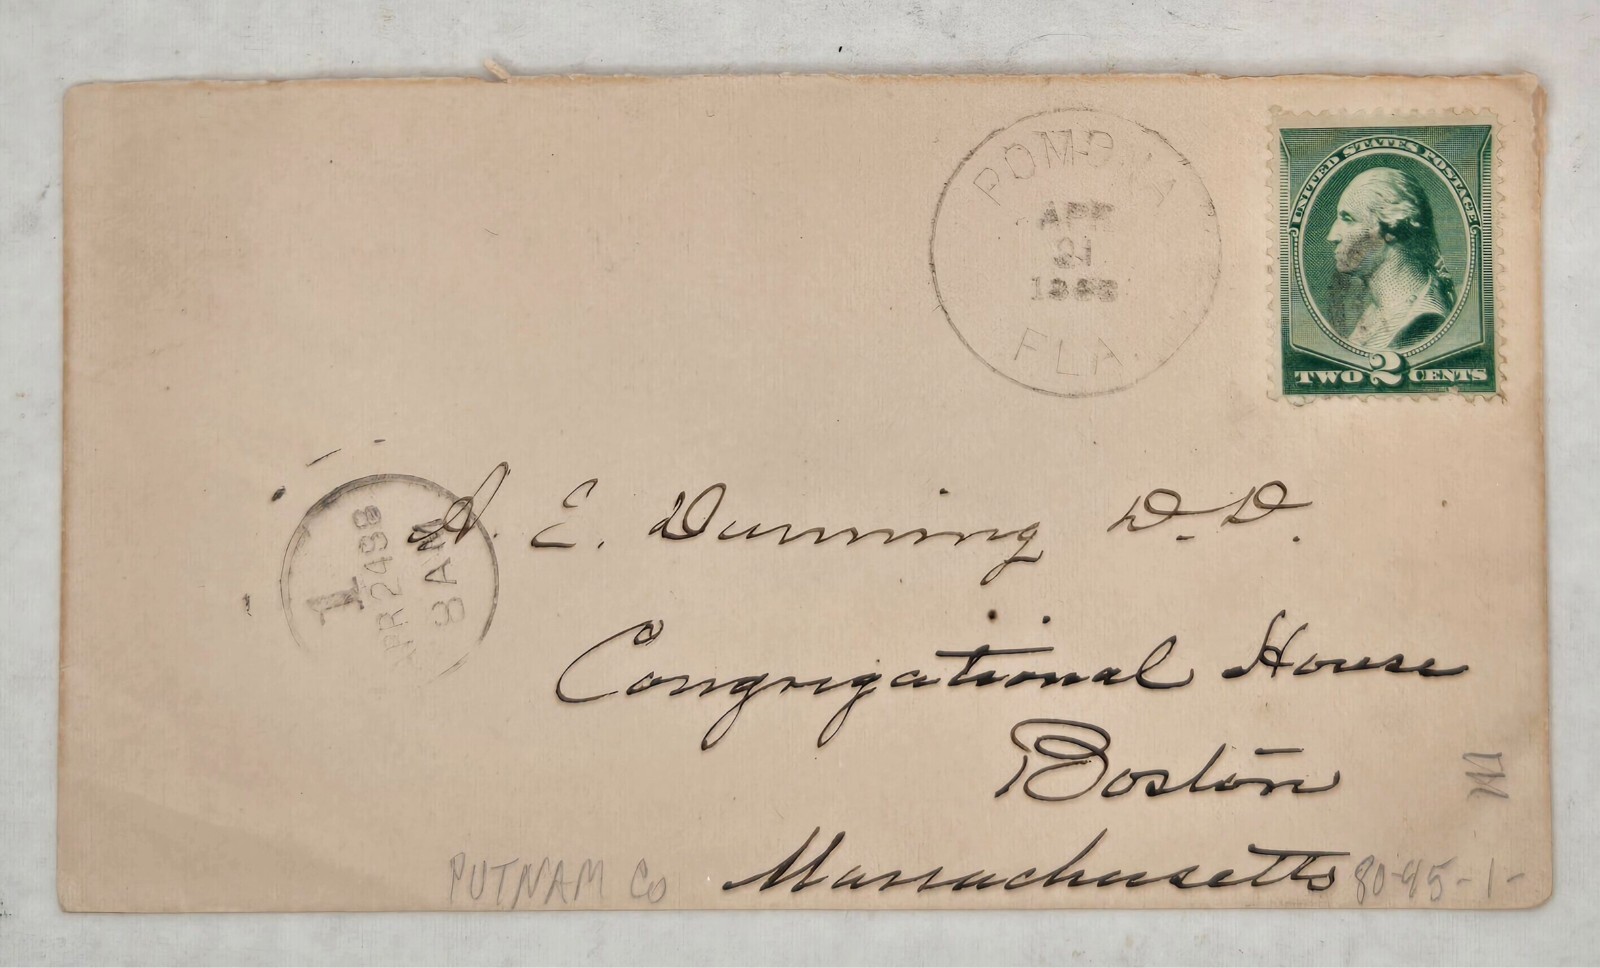 POMONA
APR
21
1888
FLA
UNITED STATES POSTAGE
TWO 2 CENTS
1
APR 24 88
8 AM
A. E. Dunning D. D.
Congrigational House
Boston
Massachusetts
PUTNAM Co
80-95-1-